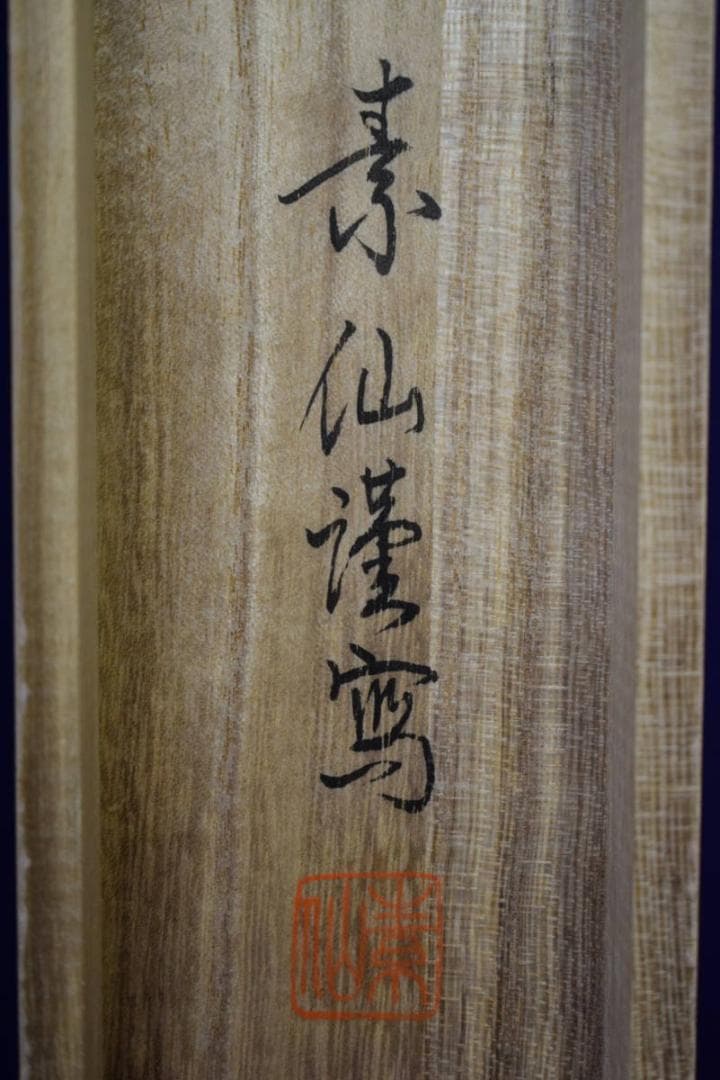 素仙謹寫
素仙